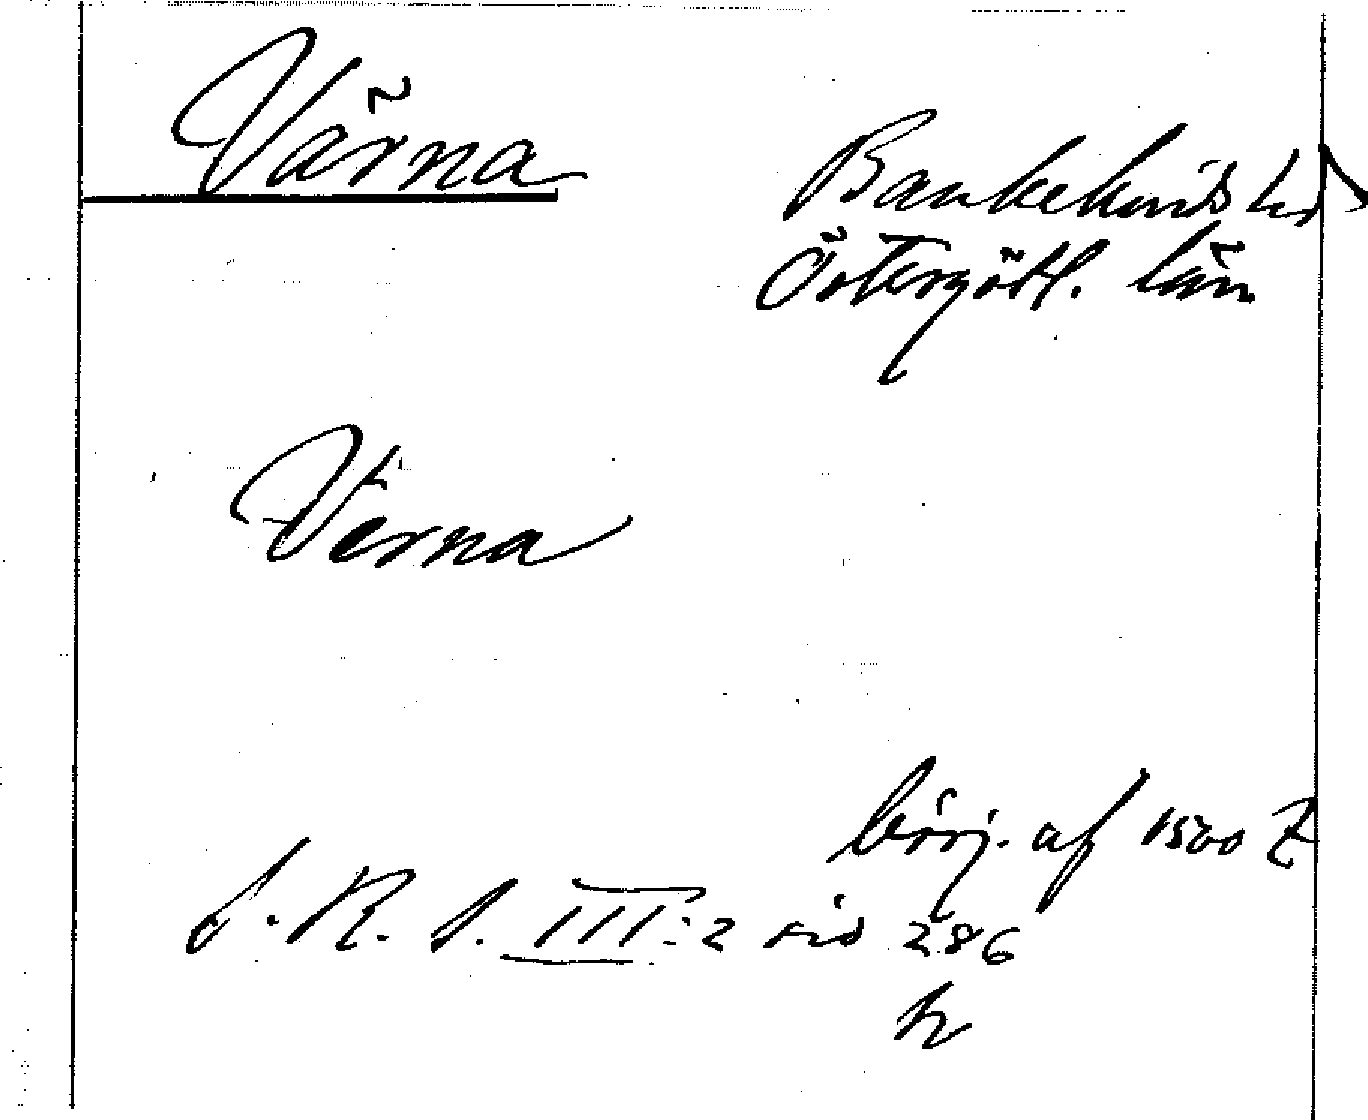 Värna
Bankekinds hd
Östergötl. län
Värna
börj. af 1500 t
S. R. S. III:2 sid 286
h